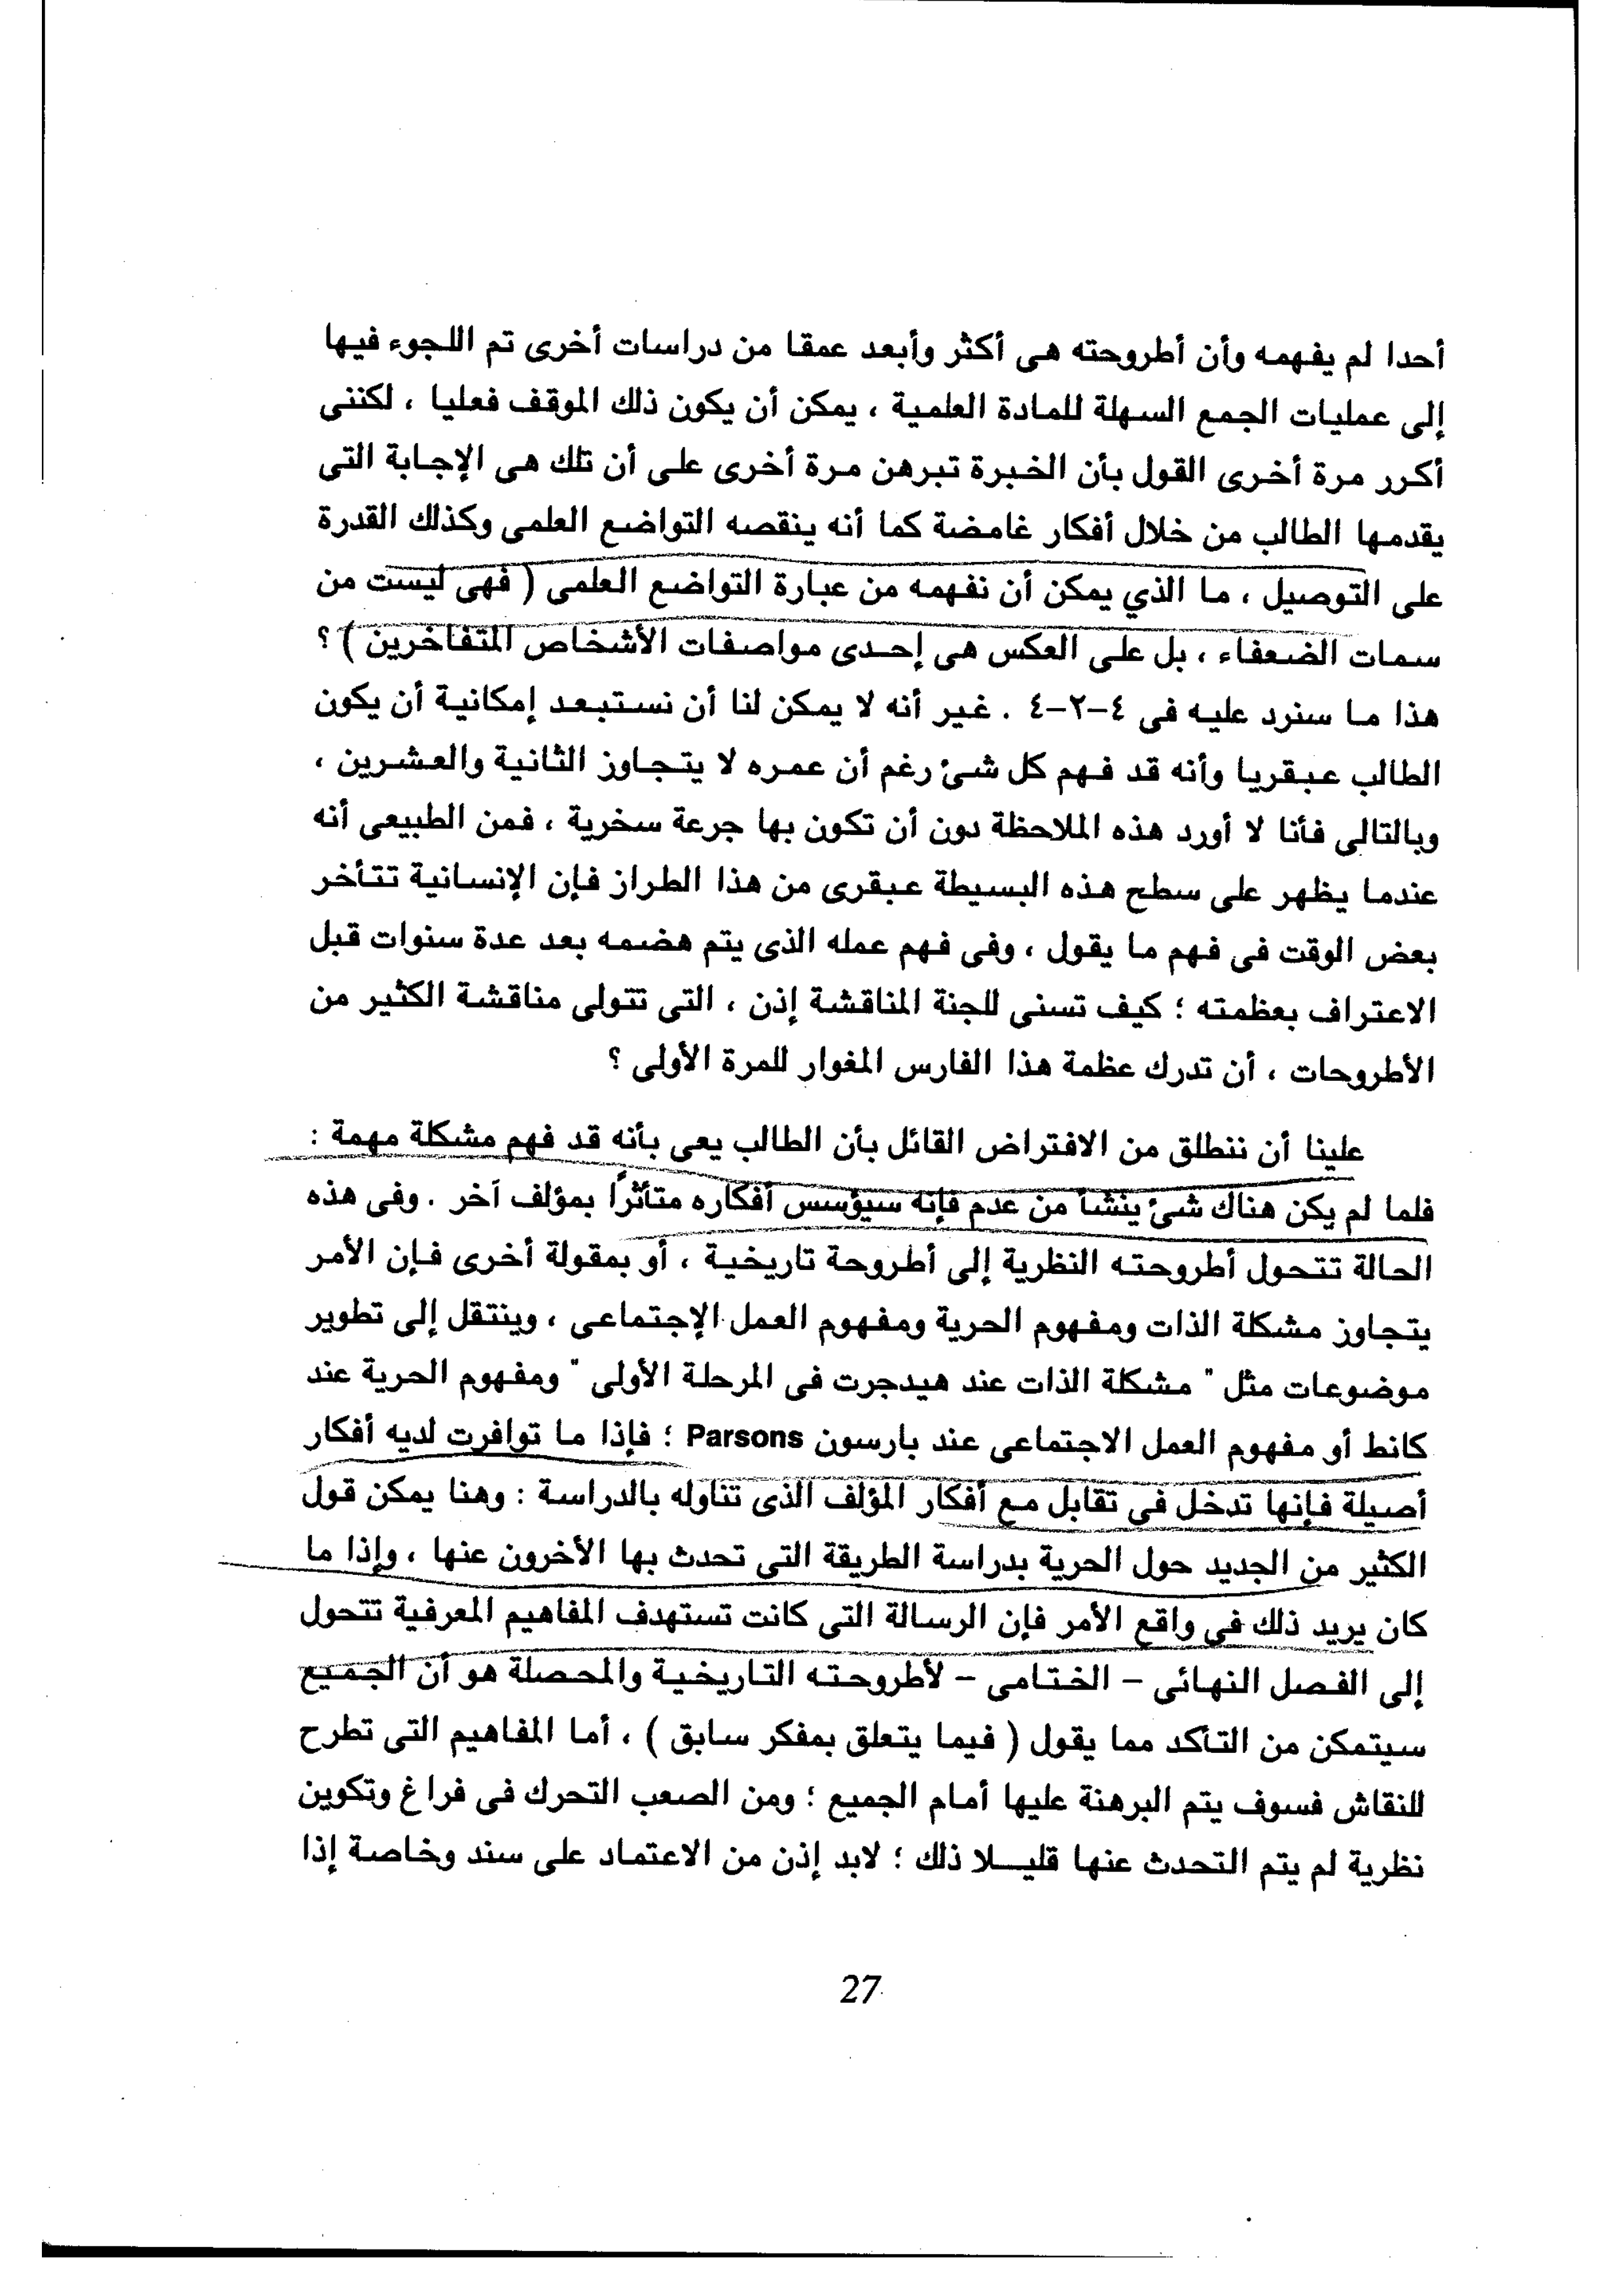 أحدا لم يفهمه وأن أطروحته هى أكثر وأبعد عمقا من دراسات أخرى تم اللجوء فيها
إلى عمليات الجمع السهلة للمادة العلمية ، يمكن أن يكون ذلك الموقف فعليا ، لكننى
أكرر مرة أخرى القول بأن الخبرة تبرهن مرة أخرى على أن تلك هى الإجابة التى
يقدمها الطالب من خلال أفكار غامضة كما أنه ينقصه التواضع العلمى وكذلك القدرة
على التوصيل ، ما الذي يمكن أن نفهمه من عبارة التواضع العلمى ( فهى ليست من
سمات الضعفاء ، بل على العكس هى إحدى مواصفات الأشخاص المتفاخرين ) ؟
هذا ما سنرد عليه فى ٤-٢-٤ . غير أنه لا يمكن لنا أن نستبعد إمكانية أن يكون
الطالب عبقريا وأنه قد فهم كل شئ رغم أن عمره لا يتجاوز الثانية والعشرين ،
وبالتالى فأنا لا أورد هذه الملاحظة دون أن تكون بها جرعة سخرية ، فمن الطبيعى أنه
عندما يظهر على سطح هذه البسيطة عبقرى من هذا الطراز فإن الإنسانية تتأخر
بعض الوقت فى فهم ما يقول ، وفى فهم عمله الذى يتم هضمه بعد عدة سنوات قبل
الاعتراف بعظمته ؛ كيف تسنى للجنة المناقشة إذن ، التى تتولى مناقشة الكثير من
الأطروحات ، أن تدرك عظمة هذا الفارس المغوار للمرة الأولى ؟
علينا أن ننطلق من الافتراض القائل بأن الطالب يعى بأنه قد فهم مشكلة مهمة :
فلما لم يكن هناك شئ ينشأ من عدم فإنه سيؤسس أفكاره متأثرًا بمؤلف آخر . وفى هذه
الحالة تتحول أطروحته النظرية إلى أطروحة تاريخية ، أو بمقولة أخرى فإن الأمر
يتجاوز مشكلة الذات ومفهوم الحرية ومفهوم العمل الإجتماعى ، وينتقل إلى تطوير
موضوعات مثل " مشكلة الذات عند هيدجرت فى المرحلة الأولى " ومفهوم الحرية عند
كانط أو مفهوم العمل الاجتماعى عند بارسون Parsons ؛ فإذا ما توافرت لديه أفكار
أصيلة فإنها تدخل في تقابل مع أفكار المؤلف الذى تناوله بالدراسة : وهنا يمكن قول
الكثير من الجديد حول الحرية بدراسة الطريقة التى تحدث بها الأخرون عنها ، وإذا ما
كان يريد ذلك فى واقع الأمر فإن الرسالة التى كانت تستهدف المفاهيم المعرفية تتحول
إلى الفصل النهائى - الختامى - لأطروحته التاريخية والمحصلة هو أن الجميع
سيتمكن من التأكد مما يقول ( فيما يتعلق بمفكر سابق ) ، أما المفاهيم التى تطرح
للنقاش فسوف يتم البرهنة عليها أمام الجميع ؛ ومن الصعب التحرك فى فراغ وتكوين
نظرية لم يتم التحدث عنها قليلا ذلك ؛ لابد إذن من الاعتماد على سند وخاصة إذا
27